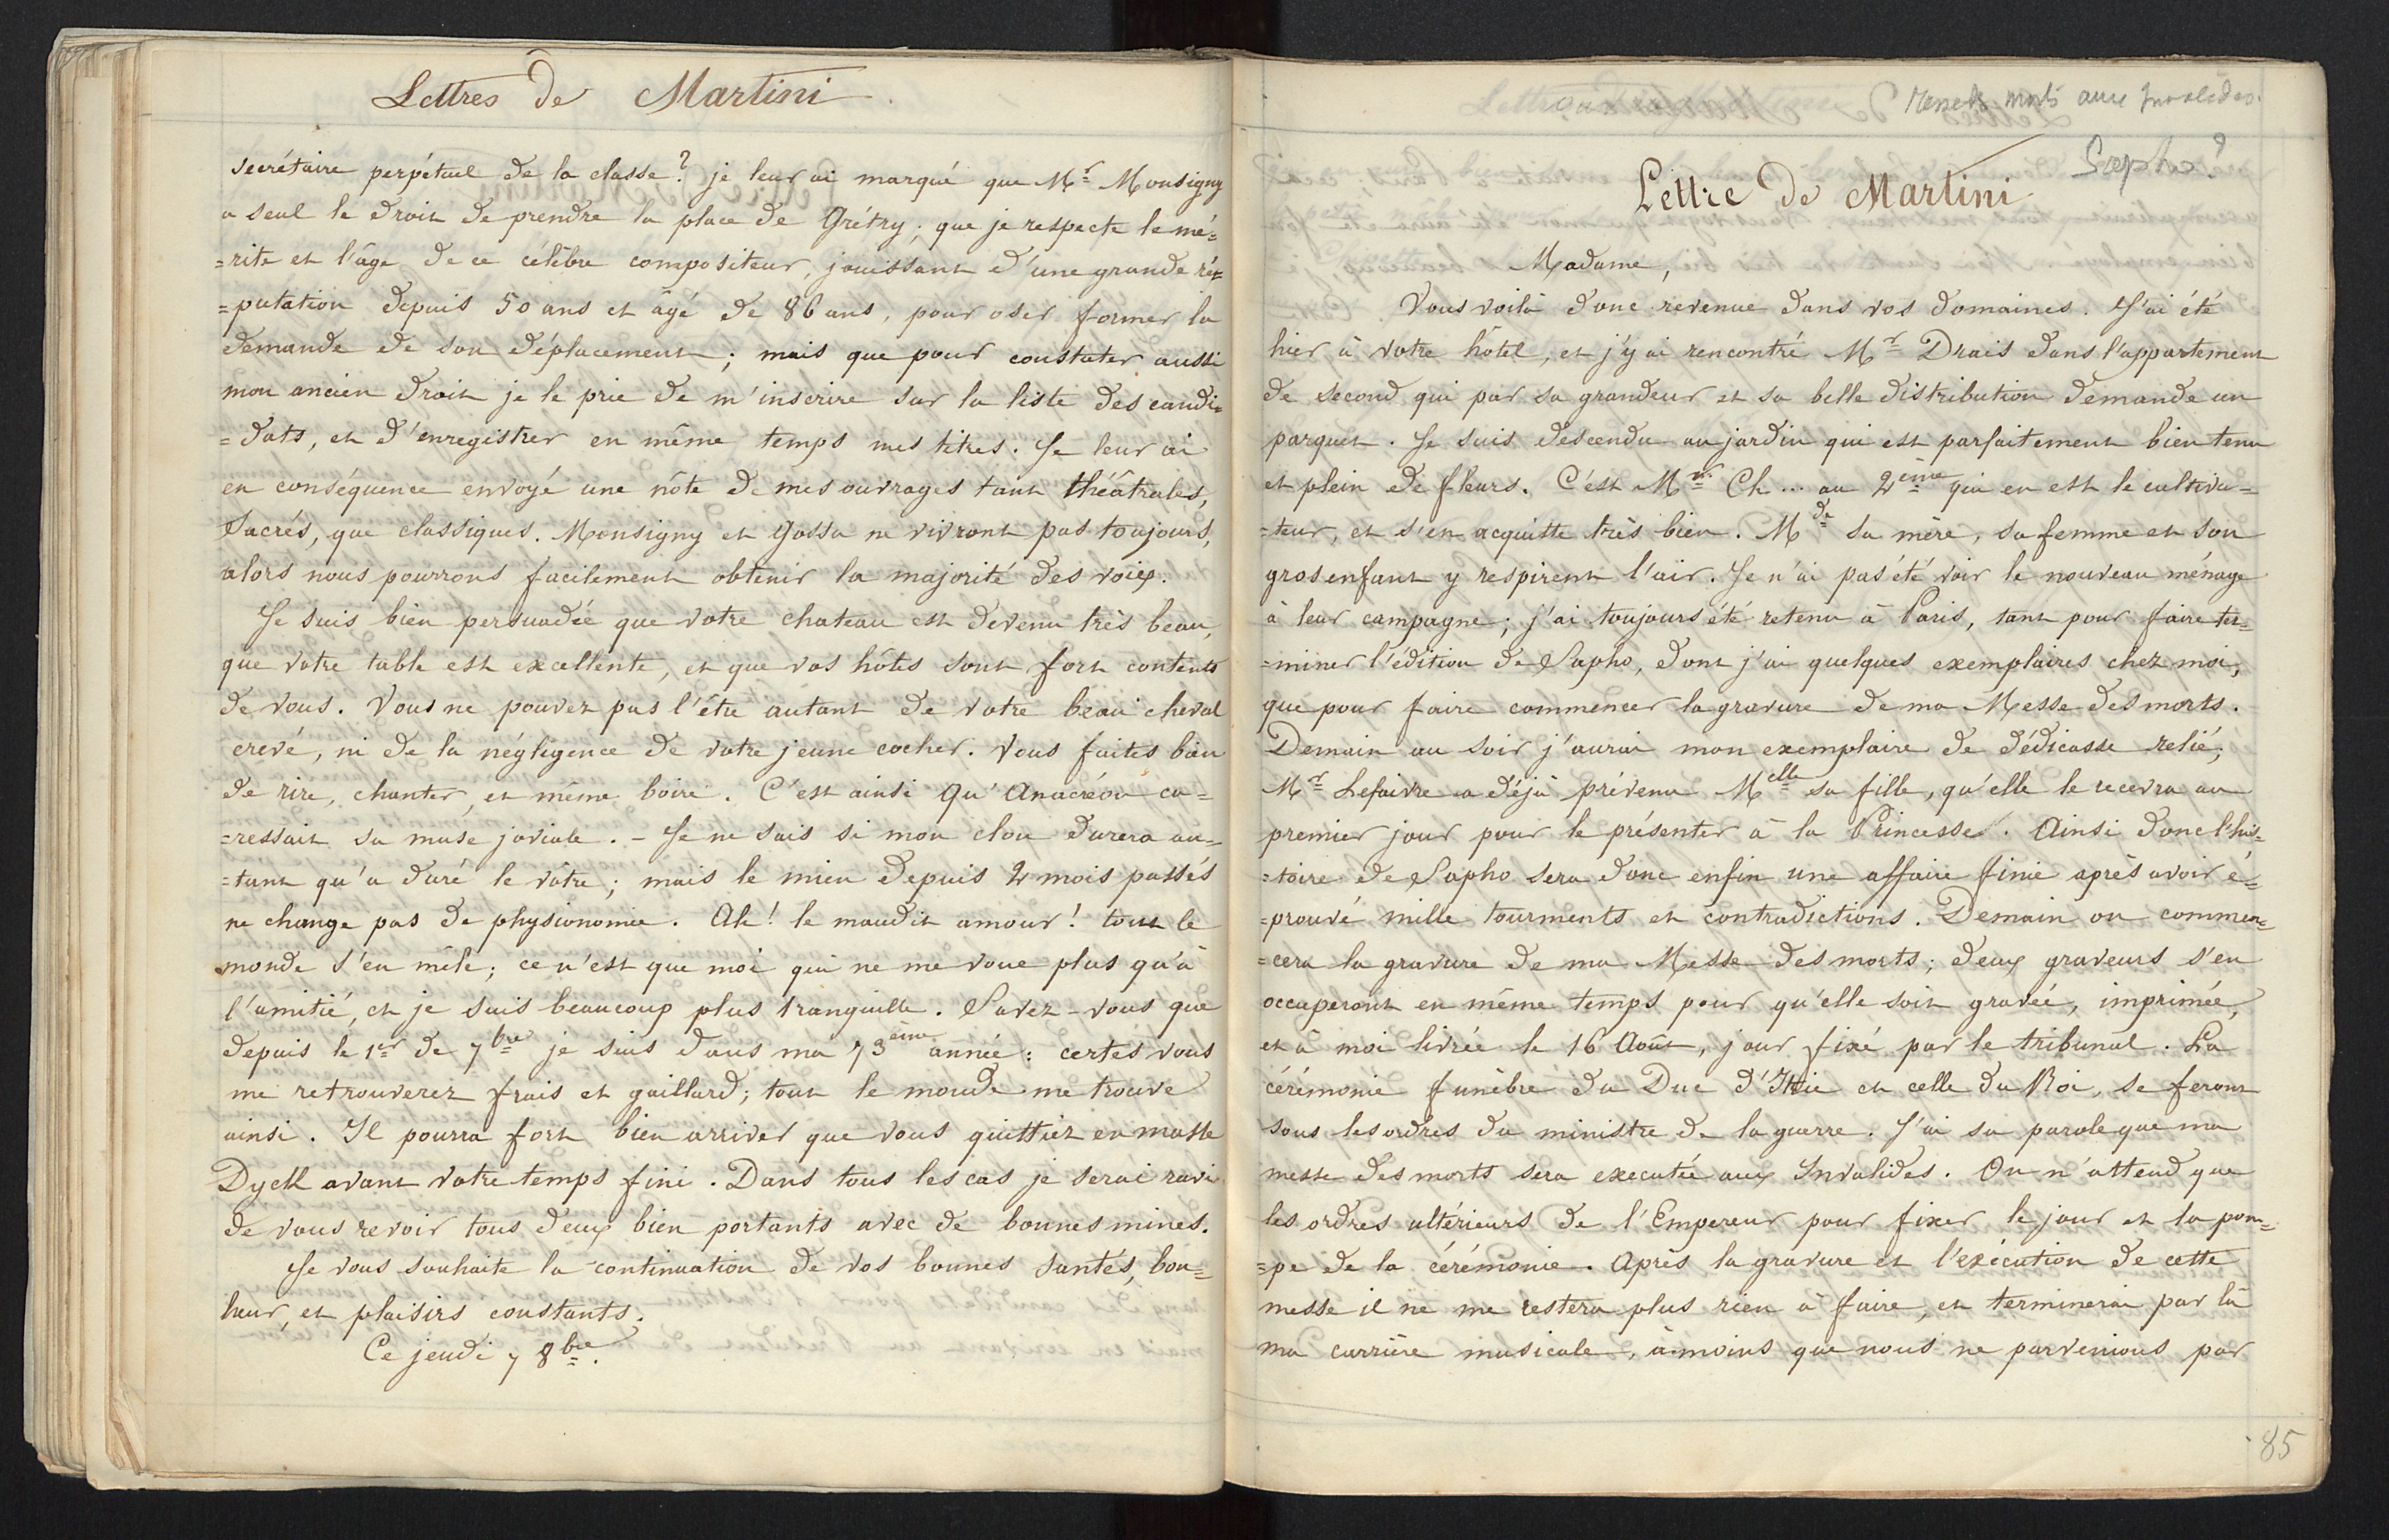 Lettres de Martini.
secrétaire perpétuel de la classe? je leur ai marqué que Mr Monsigny
a seul le droit de prendre la place de Grétry; que je respecte le mé=
=rite et l'âge de ce célèbre compositeur, jouissant d'une grande ré=
=putation depuis 50 ans et âgé de 86 ans, pour oser former la
demande de son déplacement; mais que pour constater aussi
mon ancien droit je le prie de m'inscrire sur la liste des candi=
=dats, et d'enregistrer en même temps mes titres. Je leur ai
en conséquence envoyé une nôte de mes ouvrages tant théâtrales,
Sacrés, que classiques. Monsigny et Gossa ne vivront pas toujours,
alors nous pourrons facilement obtenir la majorité des voix.
Je suis bien persuadée que votre chateau est devenu très beau,
que votre table est excellente, et que vos hôtes sont fort contents
de vous. Vous ne pouvez pas l'être autant de votre beau cheval
crevé, ni de la négligence de votre jeune cocher. Vous faites bien
de rire, chanter, et même boire. C'est ainsi qu'Anacréon ca=
=ressait sa muse joviale. - Je ne sais si mon clou durera au=
=tant qu'a duré le vôtre; mais le mien depuis 2 mois passés
ne change pas de physionomie. Ah! le maudit amour! tout le
monde s'en mêle; ce n'est que moi qui ne me voue plus qu'à
l'amitié, et je suis beaucoup plus tranquille. Savez-vous que
depuis le 1er de 7bre je suis dans ma 73ème année: certes vous
me retrouverez frais et gaillard; tout le monde me trouve
ainsi. Il pourra fort bien arriver que vous quittiez en masse
Dyck avant votre temps fini. Dans tous les cas je serai ravi
de vous revoir tous deux bien portants avec de bonnes mines.
Je vous souhaite la continuation de vos bonnes santés, bon=
heur, et plaisirs constants.
Ce jeudi 7 8bre.
morts aux Invalides.
Sapho?
Lettre de Martini
Madame,
Vous voilà donc revenue dans vos domaines. J'ai été
hier à votre hôtel, et j'y ai rencontré Mr Drais dans l'appartement
de second qui par sa grandeur et sa belle distribution demande un
parquet. Je suis descendu au jardin qui est parfaitement bien tenu
et plein de fleurs. C'est Mr Ch... au 2ème qui en est le cultiva=
=teur, et s'en acquitte très bien. Mde sa mère, sa femme et son
gros enfant y respirent l'air. Je n'ai pas été voir le nouveau ménage
à leur campagne; j'ai toujours été retenu à Paris, tant pour faire ter=
=miner l'édition de Sapho, dont j'ai quelques exemplaires chez moi,
que pour faire commencer la gravure de ma Messe des morts.
Demain au soir j'aurai mon exemplaire de dédicasse relié;
Mr Lefaivre a déjà prévenu Melle sa fille, qu'elle le recevra au
premier jour pour le présenter à la Princesse. Ainsi donc l'his=
=toire de Sapho sera donc enfin une affaire finie après avoir é=
=prouvé mille tourments et contradictions. Demain on commen=
=cera la gravure de ma Messe des morts; deux graveurs s'en
occuperont en même temps pour qu'elle soit gravée, imprimée,
et à moi livrée le 16 Août, jour fixé par le tribunal. La
cérémonie funèbre du Duc d'Istrie et celle du Roi, se feront
sous les ordres du ministre de la guerre. J'ai sa parole que ma
messe des morts sera executée aux Invalides. On n'attend que
les ordres ultérieurs de l'Empereur pour fixer le jour et la pom=
=pe de la cérémonie. Après la gravure et l'exécution de cette
messe il ne me restera plus rien à faire, et terminerai par là
ma carrière musicale, à moins que nous ne parvenions par
85